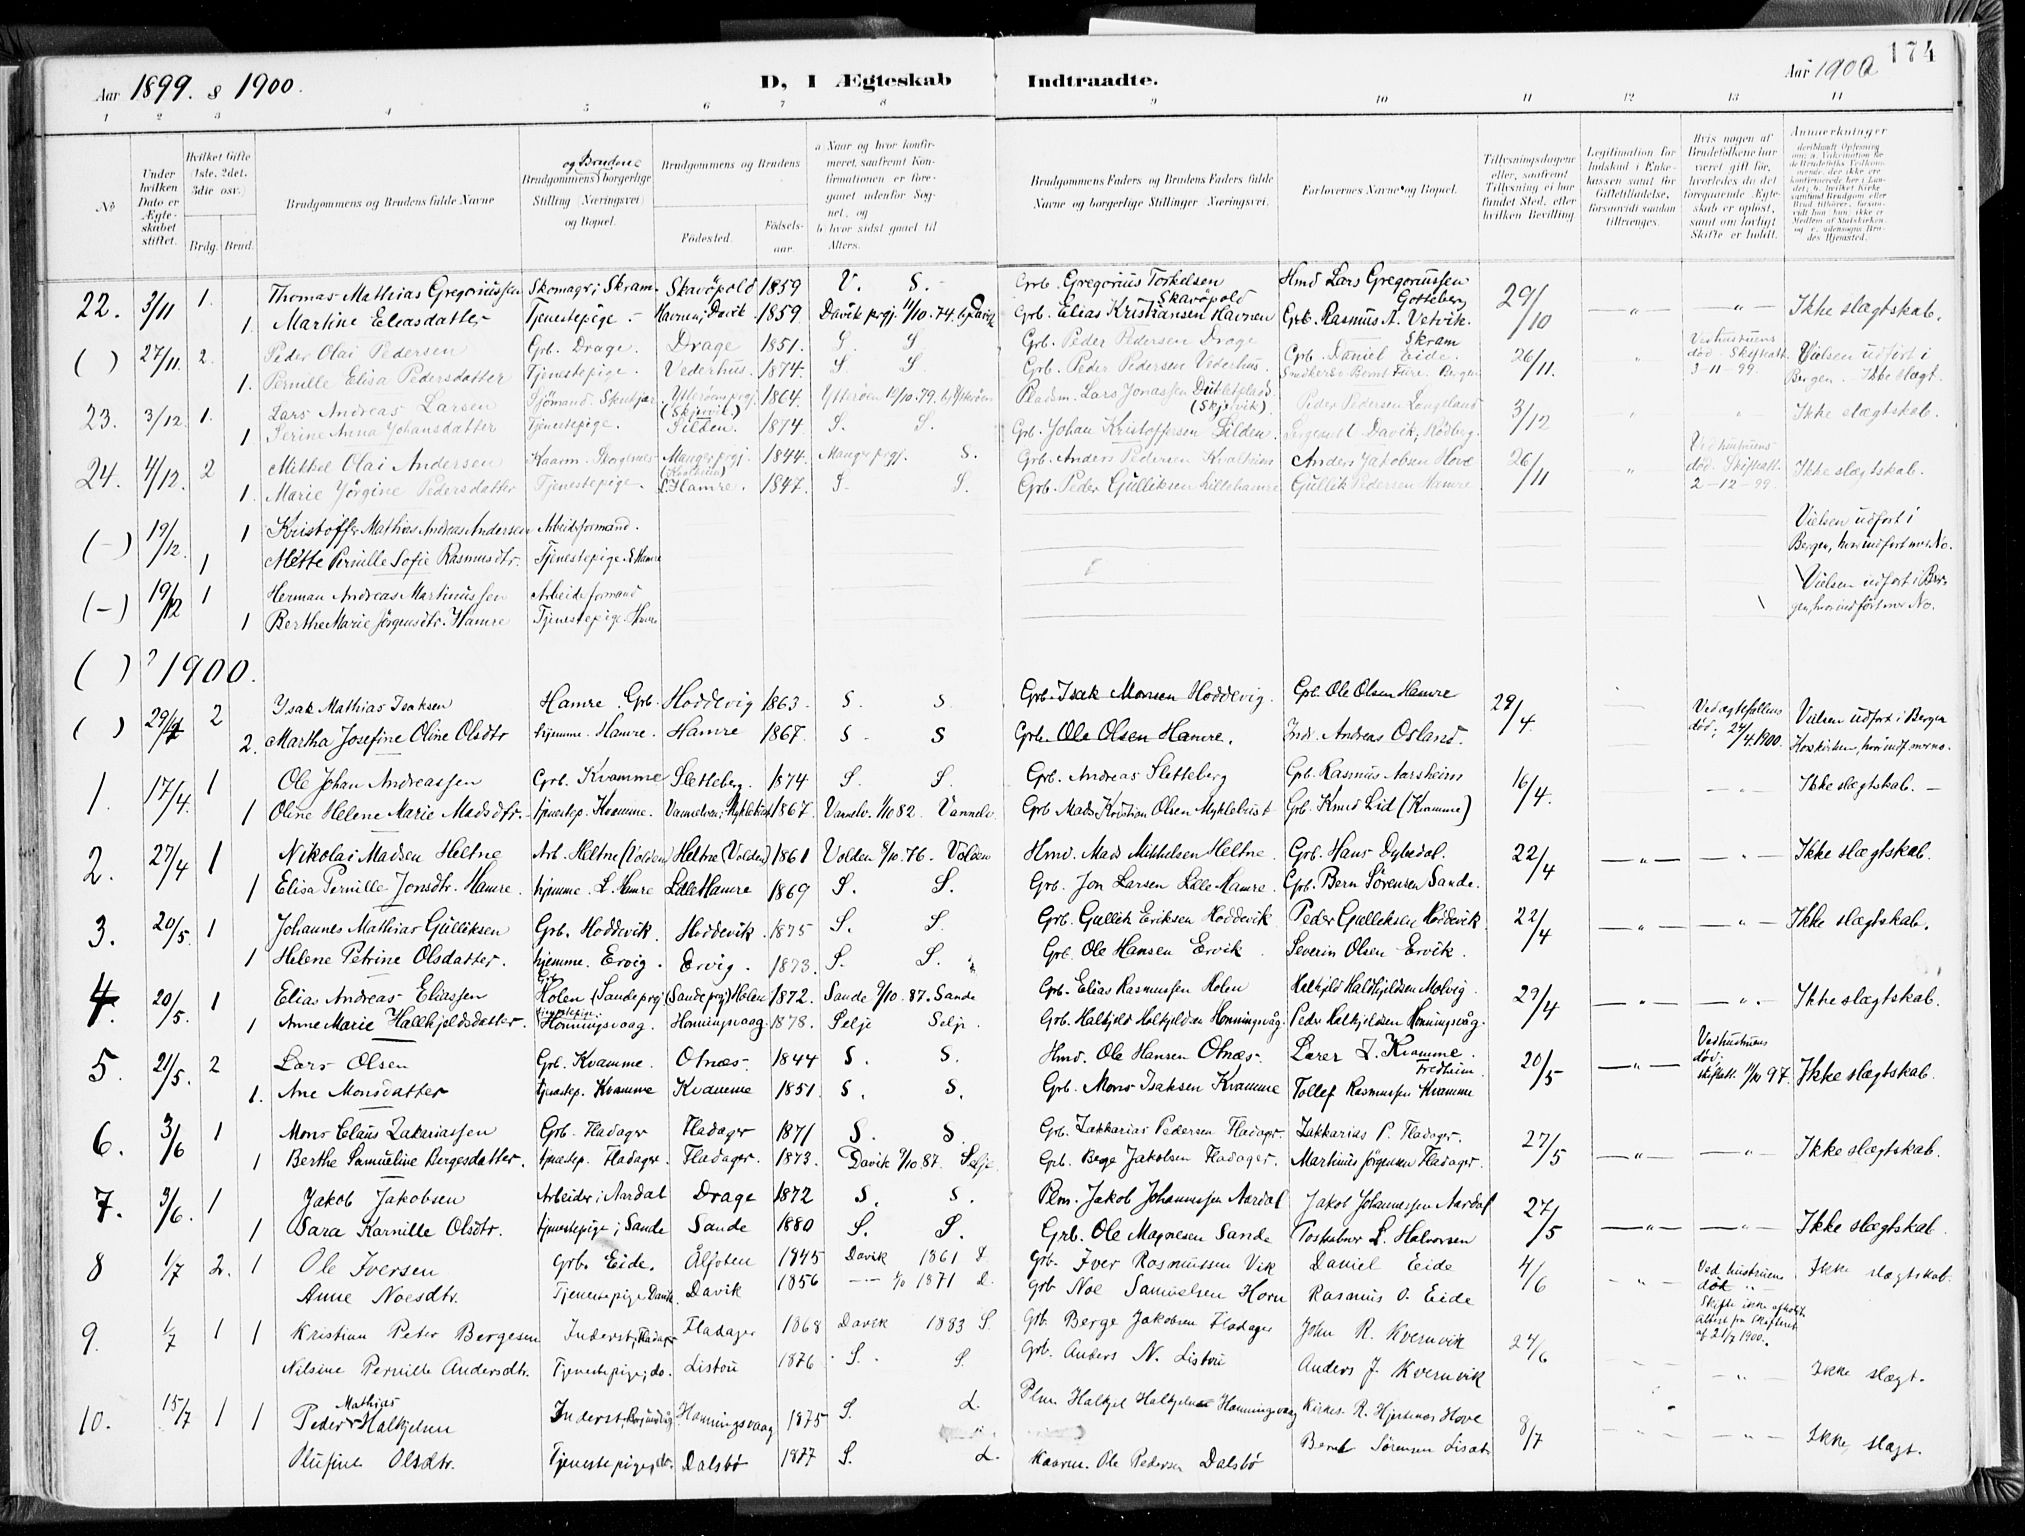 174
Aar 1899. & 1900.
D, I Ægteskab Indtraadte.
Aar 1900
1 2 3 4 5 6 7 8 9 10 11 12 13 14
No
Under hvilken Dato er Ægteskabet stiftet.
Hvilket Gifte 1ste, 2det, 3die osv.)
Brdg. Brud.
Brudgommens og Brudens fulde Navne
Brudgommens og Brudens borgerlige Stilling (Næringsvei) og Bopæl.
Brudgommens og Brudens
Fødested. Fødselsaar.
a Naar og hvor konfirmeret, saafremt Konfirmationen er foregaaet udenfor Sognet, og
b hvor sidst gaaet til Alters.
Brudgommens Faders og Brudens Faders fulde Navne og borgerlige Stillinger Næringsvei.
Forlovernes Navne og Bopæl.
Tillysningsdagene eller, saafremt Tillysning ei har fundet Sted, efter hvilken Bevilling.
Legitimation for Indskud i Enkekassen samt for Giftetilladelse, forsaavidt saadan tiltrænges.
Hvis nogen af Brudefolkene har været gift før, hvorledes da det foregaaende Ægteskab er opløst, samt om lovligt Skifte er holdt.
Anmerkninger
22. 3/11 1. Thomas Mathias Gregoriussen Skomagr i Skram. Skavöpold 1859 V. S. Grb. Gregorius Torkelsen Skavöpold Hmd Lars Gregoriussen Gotteberg 29/10 Ikke slægtskab.
1 Martine Eliasdatter Tjenestepige Havnen, Davik 1859. Davik prgj. 11/10.74. Grb. Elias Kristiansen Havnen Grb. Rasmus A. Vetvik. Skram
( ) 27/11. 2. Peder Olai Pedersen Grb. Drage. Drage 1851. S S Grb. Peder Pedersen Drage Grb. Daniel Eide. 26/11. Ved hustruens død. Skifteatt. 3-11-99. Vielsen udført i Bergen. Ikke slægt.
1. Pernille Elisa Pedersdatter Tjenestepige. Vederhus. 1874. S S Grb. Peder Pedersen Vederhus.
23. 3/12 1. Lars Andreas Larsen Sjömand. (Skjelvik) 1864 Pladsm. Lars Jonassen (Skjelvik) Peder Pedersen 3/12 Ikke slægtskab.
1 Serine Anna Johansdatter Tjenestepige. Silden. 1874 S. S. Grb. Johan Kristoffersen Silden. Davik, Rödberg.
24. 4/12. 2 Mikkel Olai Andersen Manger prgj. 1844. Manger prgj. S. Grb. Anders Pedersen Kvalheim Anders Jakobsen Hove 26/11 Ved hustruens død. Skifteatt. 2-12-99 Ikke slægtskab.
1. Marie Jörgine Pedersdatter Tjenestepige L. Hamre. 1847. S. S. Grb. Peder Gulliksen Lillehamre Gullik Pedersen Hamre
(-) 19/12. 1 Kristoffer Mathias Andreas Andersen Arbeidsformand. Vielsen udført i Bergen, hvor indført mer No.
1 Mette Pernille Sofie Rasmusdtr. Tjenestepige L. Hamre
(-) 19/12 1 Herman Andreas Martinussen Arbeidsformand Vielsen udført i Bergen, hvor indført mer No.
1 Berthe Marie Jörgensdtr. Hamre Tjenestepige. Hamre
( ) ? 1900.
( ) 29/4 2 Isak Mathias Isaksen Hamre. Grb. Hoddevig 1863. S S Grb. Isak Monsen Hoddevig. Grb. Ole Olsen Hamre 29/4. Ved ægtefællens død, 24/4.1900. Vielsen udført i Bergen
2. Martha Josefine Oline Olsdtr hjemme. Hamre. Hamre 1867. S S Grb. Ole Olsen Hamre. Indr. Andreas Osland.
1. 17/4. 1 Ole Johan Andreassen Grb. Kvamme Sletteberg. 1874 S. S. Grb. Andreas Sletteberg Grb. Rasmus Aarsheim 16/4. Ikke slægtskab.
1 Oline Helene Marie Madsdtr. tjenestep. Kvamme. Vannelven, Myklebust 1867. Vannelv. 1/10 82. Vannelv. Grb Mads Kristian Olsen Myklebust Grb. Knud Lid (Kvamme)
2. 27/4 1 Nikolai Madsen Heltne Arb. Heltne (Volden) Heltne (Volden) 1861 Volden 8/10.76. Volden Hmd. Mads Mikkelsen Heltne. Grb. Hans Dybedal. 22/4 Ikke slægtskab.
1 Elisa Pernille Jonsdtr. Hamre. hjemme. L. Hamre Lille Hamre 1869 S. S. Grb. Jon Larsen Lille Hamre. Grb. Bern Sörensen Sande.
3. 20/5. 1 Johannes Mathias Gulliksen Grb. Hoddevik. Hoddevik. 1875 S. S. Grb. Gullik Eriksen Hoddevik Peder Gulleksen Hoddevik 22/4 Ikke slægtskab.
1 Helene Petrine Olsdatter. hjemme. Ervig. Ervig. 1873. S. S. Grb. Ole Hansen Ervik. Severin Olsen Ervik.
4. 20/5. 1 Elias Andreas Eliassen Holen (Sande prgj) (Sande prgj) Holen 1872. Sande 9/10.87. Sande Grb. Elias Rasmussen Holen Halkjeld Halkjeldsen Molvig. 29/4 Ikke slægtskab.
1 Anne Marie Hallkjeldsdatter. Tjenestepige. Honningsvaag. Honningsvaag. 1878. Selje Selje. Grb. Halkjeld Halkjeldsen Honningsvåg. Peder Halkjeldsen Honningsvåg.
5. 21/5. 2 Lars Olsen Grb. Kvamme. Otnæs. 1844 S. S. Hmd. Ole Hansen Otnæs. Lærer L. Kvamme. Fredheim. 20/5 Ved hustruens død; skifteatt. 11/10 97. Ikke slægtskab.
1. Ane Monsdatter tjenestep. Kvamme Kvamme 1851. S. S. Grb. Mons Isaksen Kvamme Tollef Rasmussen Kvamme
6. 3/6 1 Mons Claus Zakariassen Grb. Fladager Fladager 1871 S. S. Grb. Zakkarias Pedersen Fladager. Zakkarias P. Fladager. 27/5 Ikke slægtskab.
1 Berthe Samueline Bergesdatter. tjenestep. Fladager. Fladager. 1873. Davik 9/10.87. Selje. Grb. Berge Jakobsen Fladager. Martinus Jörgensen Fladager.
7. 3/6. 1 Jakob Jakobsen Arbeider i Aardal Drage 1872 S. S. Plm. Jakob Johannessen Aardal Jakob Johannessen Aardal 27/5 Ikke slægtskab.
1 Sara Karnille Olsdtr. tjenestepige, Sande Sande 1880 S. S. Grb. Ole Magnesen Sande Postaabner L. Halvorsen
8 1/7 2. 1 Ole Iversen Grb. Eide. Ålfoten 1845 Davik 1861 S. Grb. Iver Rasmussen Vik Daniel Eide 4/6 Ved hustruens død Ikke slægtskab.
Anne Noesdtr. Tjenestepige Davik. Davik 1856 1/10 1871 d. Grb Noe Samuelsen Horn Rasmus O. Eide Skifte ikke afholdt. Attest fra Skifteret af 21/7 1900.
9. 1/7 1 1 Kristian Peter Bergesen Inderst, Fladager Fladager 1868 Davik 1883 S. Grb. Berge Jakobsen Fladager John R. Kvernvik 24/6
Nilsine Pernille Andersdtr. Tjenestepige, do. Listou 1876 S. S. Grb. Anders N. Listou Anders J Kvernvik Ikke slægt.
10. 15/7 1 1 Peder Mathias Halkjelsen Inderst, Honningsvaag 1875 S. d. Plm. Halkjel Halkjelsen Honningsvaag Kirkes. R. Hjertenæs Hove 8/7
Olufine Olsdtr. Tjenestepige, do. Dalsbö 1877 S. d. Kaarm. Ole Pedersen Dalsbö Bernt Sörensen Ikke slægt.